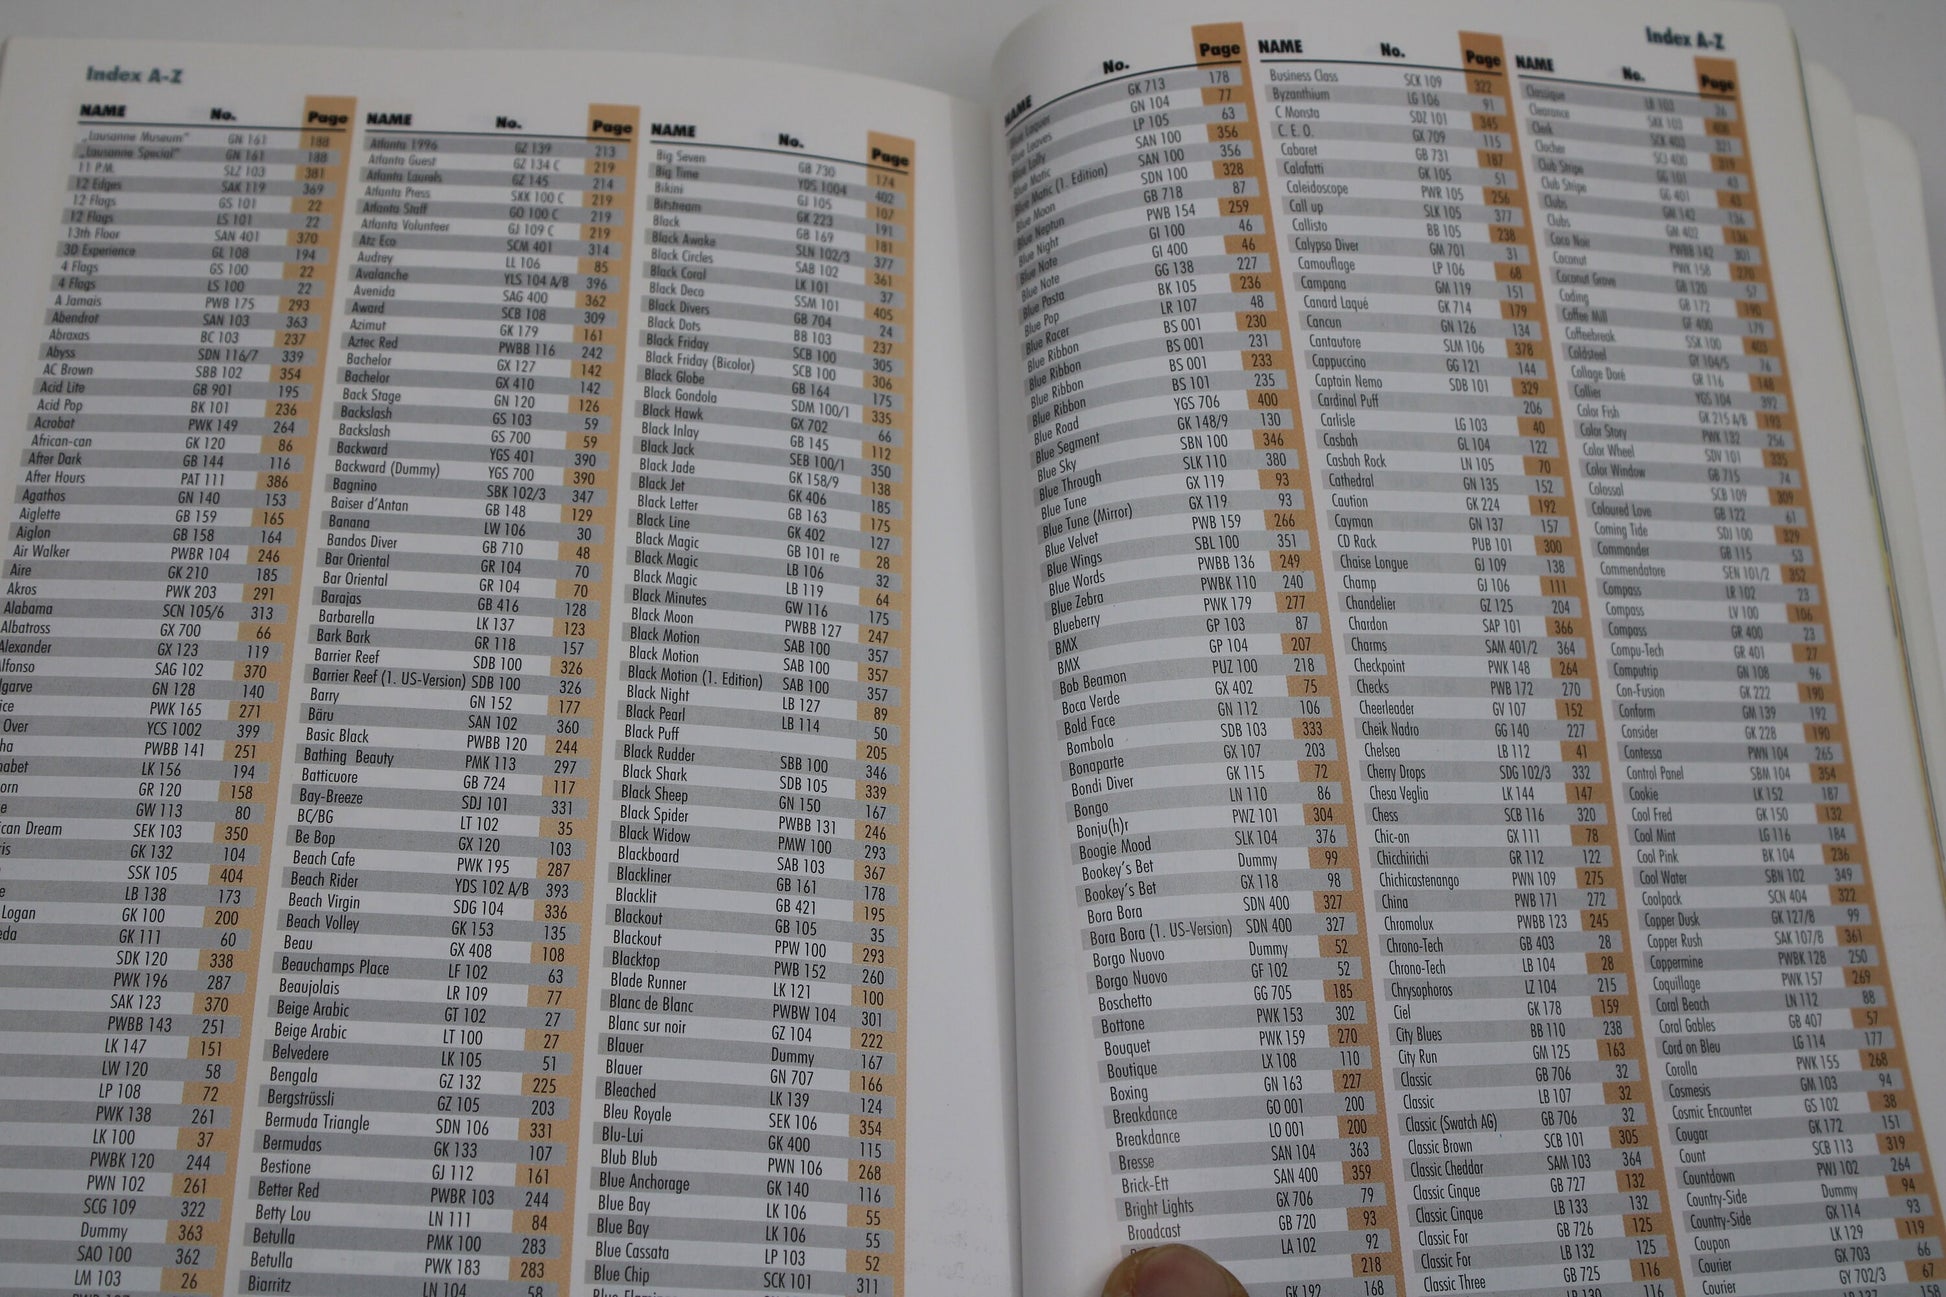 Index A-Z
NAME No. Page
„Lausanne Museum" GN 161 188
„Lausanne Special" GN 161 188
11 P.M. SLZ 103 381
12 Edges SAK 119 369
12 Flags GS 101 22
12 Flags LS 101 22
13th Floor SAN 401 370
3D Experience GL 108 194
4 Flags GS 100 22
4 Flags LS 100 22
A Jamais PWB 175 293
Abendrot SAN 103 363
Abraxas BC 103 237
Abyss SDN 116/7 339
AC Brown SBB 102 354
Acid Lite GB 901 195
Acid Pop BK 101 236
Acrobat PWK 149 264
African-can GK 120 86
After Dark GB 144 116
After Hours PAT 111 386
Agathos GN 140 153
Aiglette GB 159 165
Aiglon GB 158 164
Air Walker PWBR 104 246
Aire GK 210 185
Akros PWK 203 291
Alabama SCN 105/6 313
Albatross GX 700 66
Alexander GX 123 119
lfonso SAG 102 370
lgarve GN 128 140
ice PWK 165 271
Over YCS 1002 399
ha PWBB 141 251
abet LK 156 194
orn GR 120 158
e GW 113 80
ican Dream SEK 103 350
ris GK 132 104
SSK 105 404
e LB 138 173
Logan GK 100 200
eda GK 111 60
SDK 120 338
PWK 196 287
SAK 123 370
PWBB 143 251
LK 147 151
LW 120 58
LP 108 72
PWK 138 261
LK 100 37
PWBK 120 244
PWN 102 261
SCG 109 322
Dummy 363
SAO 100 362
LM 103 26
NAME No. Page
Atlanta 1996 GZ 139 213
Atlanta Guest GZ 134 C 219
Atlanta Laurels GZ 145 214
Atlanta Press SKK 100 C 219
Atlanta Staff GO 100 C 219
Atlanta Volunteer GJ 109 C 219
Atz Eco SCM 401 314
Audrey LL 106 85
Avalanche YLS 104 A/B 396
Avenida SAG 400 362
Award SCB 108 309
Azimut GK 179 161
Aztec Red PWBB 116 242
Bachelor GX 127 142
Bachelor GX 410 142
Back Stage GN 120 126
Backslash GS 103 59
Backslash GS 700 59
Backward YGS 401 390
Backward (Dummy) YGS 700 390
Bagnino SBK 102/3 347
Baiser d'Antan GB 148 129
Banana LW 106 30
Bandos Diver GB 710 48
Bar Oriental GR 104 70
Bar Oriental GR 104 70
Barajas GB 416 128
Barbarella LK 137 123
Bark Bark GR 118 157
Barrier Reef SDB 100 326
Barrier Reef (1. US-Version) SDB 100 326
Barry GN 152 177
Bäru SAN 102 360
Basic Black PWBB 120 244
Bathing Beauty PMK 113 297
Batticuore GB 724 117
Bay-Breeze SDJ 101 331
BC/BG LT 102 35
Be Bop GX 120 103
Beach Cafe PWK 195 287
Beach Rider YDS 102 A/B 393
Beach Virgin SDG 104 336
Beach Volley GK 153 135
Beau GX 408 108
Beauchamps Place LF 102 63
Beaujolais LR 109 77
Beige Arabic GT 102 27
Beige Arabic LT 100 27
Belvedere LK 105 51
Bengala GZ 132 225
Bergstrüssli GZ 105 203
Bermuda Triangle SDN 106 331
Bermudas GK 133 107
Bestione GJ 112 161
Better Red PWBR 103 244
Betty Lou LN 111 84
Betulla PMK 100 283
Betulla PWK 183 283
Biarritz LN 104 58
NAME No. Page
Big Seven GB 730 174
Big Time YDS 1004 402
Bikini GJ 105 107
Bitstream GK 223 191
Black GB 169 181
Black Awake SLN 102/3 377
Black Circles SAB 102 361
Black Coral LK 101 37
Black Deco SSM 101 405
Black Divers GB 704 24
Black Dots BB 103 237
Black Friday SCB 100 305
Black Friday (Bicolor) SCB 100 306
Black Globe GB 164 175
Black Gondola SDM 100/1 335
Black Hawk GX 702 66
Black Inlay GB 145 112
Black Jack SEB 100/1 350
Black Jade GK 158/9 138
Black Jet GK 406 185
Black Letter GB 163 175
Black Line GK 402 127
Black Magic GB 101 re 28
Black Magic LB 106 32
Black Magic LB 119 64
Black Minutes GW 116 175
Black Moon PWBB 127 247
Black Motion SAB 100 357
Black Motion SAB 100 357
Black Motion (1. Edition) SAB 100 357
Black Night LB 127 89
Black Pearl LB 114 50
Black Puff 205
Black Rudder SBB 100 346
Black Shark SDB 105 339
Black Sheep GN 150 167
Black Spider PWBB 131 246
Black Widow PMW 100 293
Blackboard SAB 103 367
Blackliner GB 161 178
Blacklit GB 421 195
Blackout GB 105 35
Blackout PPW 100 293
Blacktop PWB 152 260
Blade Runner LK 121 100
Blanc de Blanc PWBW 104 301
Blanc sur noir GZ 104 222
Blauer Dummy 167
Blauer GN 707 166
Bleached LK 139 124
Bleu Royale SEK 106 354
Blu-Lui GK 400 115
Blub Blub PWN 106 268
Blue Anchorage GK 140 116
Blue Bay LK 106 55
Blue Bay LK 106 55
Blue Cassata LP 103 52
Blue Chip SCK 101 311
Index A-Z
NAME No. Page
Blue Laquer GK 713 178
Blue Leaves GN 104 77
Blue Lolly LP 105 63
Blue Matic SAN 100 356
Blue Matic (1. Edition) SAN 100 356
Blue Moon SDN 100 328
Blue Neptun GB 718 87
Blue Night PWB 154 259
Blue Note GI 100 46
Blue Note GI 400 46
Blue Pasta GG 138 227
Blue Pop BK 105 236
Blue Racer LR 107 48
Blue Ribbon BS 001 230
Blue Ribbon BS 001 231
Blue Ribbon BS 001 233
Blue Ribbon BS 101 235
Blue Road YGS 706 400
Blue Segment GK 148/9 130
Blue Sky SBN 100 346
Blue Through SLK 110 380
Blue Tune GX 119 93
Blue Tune (Mirror) GX 119 93
Blue Velvet PWB 159 266
Blue Wings SBL 100 351
Blue Words PWBB 136 249
Blue Zebra PWBK 110 240
Blueberry PWK 179 277
BMX GP 103 87
BMX GP 104 207
Bob Beamon PUZ 100 218
Boca Verde GX 402 75
Bold Face GN 112 106
Bombola SDB 103 333
Bonaparte GX 107 203
Bondi Diver GK 115 72
Bongo LN 110 86
Bonju(h)r PWZ 101 304
Boogie Mood SLK 104 376
Bookey's Bet Dummy 99
Bookey's Bet GX 118 98
Bora Bora SDN 400 327
Bora Bora (1. US-Version) SDN 400 327
Borgo Nuovo Dummy 52
Borgo Nuovo GF 102 52
Boschetto GG 705 185
Bottone PWK 153 302
Bouquet PWK 159 270
Boutique LX 108 110
Boxing GN 163 227
Breakdance GO 001 200
Breakdance LO 001 200
Bresse SAN 104 363
Brick-Ett SAN 400 359
Bright Lights GX 706 79
Broadcast GB 720 93
LA 102 92
218
GK 192 168
NAME No. Page
Business Class SCK 109 322
Byzanthium LG 106 91
C Monsta SDZ 101 345
C. E. O. GX 709 115
Cabaret GB 731 187
Calafatti GK 105 51
Caleidoscope PWR 105 256
Call up SLK 105 377
Callisto BB 105 238
Calypso Diver GM 701 31
Camouflage LP 106 68
Campana GM 119 151
Canard Laqué GK 714 179
Cancun GN 126 134
Cantautore SLM 106 378
Cappuccino GG 121 144
Captain Nemo SDB 101 329
Cardinal Puff 206
Carlisle LG 103 40
Casbah GL 104 122
Casbah Rock LN 105 70
Cathedral GN 135 152
Caution GK 224 192
Cayman GN 137 157
CD Rack PUB 101 300
Chaise Longue GJ 109 138
Champ GJ 106 111
Chandelier GZ 125 204
Chardon SAP 101 366
Charms SAM 401/2 364
Checkpoint PWK 148 264
Checks PWB 172 270
Cheerleader GV 107 152
Cheik Nadro GG 140 227
Chelsea LB 112 41
Cherry Drops SDG 102/3 332
Chesa Veglia LK 144 147
Chess SCB 116 320
Chic-on GX 111 78
Chicchirichi GR 112 122
Chichicastenango PWN 109 275
China PWB 171 272
Chromolux PWBB 123 245
Chrono-Tech GB 403 28
Chrono-Tech LB 104 28
Chrysophoros LZ 104 215
Ciel GK 178 159
City Blues BB 110 238
City Run GM 125 163
Classic GB 706 32
Classic LB 107 32
Classic (Swatch AG) GB 706 32
Classic Brown SCB 101 305
Classic Cheddar SAM 103 364
Classic Cinque GB 727 132
Classic Cinque LB 133 132
Classic For GB 726 125
Classic For LB 132 125
Classic Three GB 725 116
LB 130 116
NAME No. Page
Classique LB 103 26
Clearance SKK 103 408
Clerk SCK 403 321
Clocher SCJ 400 319
Club Stripe GG 101 43
Club Stripe GG 401 43
Clubs GM 142 136
Clubs GM 402 136
Coco Noir PWBB 142 301
Coconut PWK 158 270
Coconut Grove GB 120 57
Coding GB 172 190
Coffee Mill GF 400 179
Coffeebreak SSK 100 403
Coldsteel GY 104/5 76
Collage Doré GR 116 148
Collier YGS 104 392
Color Fish GK 215 A/B 193
Color Story PWK 132 256
Color Wheel SDV 101 335
Color Window GB 715 74
Colossal SCB 109 309
Coloured Love GB 122 61
Coming Tide SDJ 100 329
Commander GB 115 53
Commendatore SEN 101/2 352
Compass LR 102 23
Compass LV 100 106
Compass GR 400 23
Compu-Tech GR 401 27
Computrip GN 108 96
Con-Fusion GK 222 190
Conform GM 139 192
Consider GK 228 190
Contessa PWN 104 265
Control Panel SBM 104 354
Cookie LK 152 187
Cool Fred GK 150 132
Cool Mint LG 116 184
Cool Pink BK 104 236
Cool Water SBN 102 349
Coolpack SCN 404 322
Copper Dusk GK 127/8 99
Copper Rush SAK 107/8 361
Coppermine PWBK 128 250
Coquillage PWK 157 269
Coral Beach LN 112 88
Coral Gables GB 407 57
Cord on Bleu LG 114 177
Corolla PWK 155 268
Cosmesis GM 103 94
Cosmic Encounter GS 102 38
Cougar GK 172 151
Count SCB 113 319
Countdown PWJ 102 264
Country-Side Dummy 94
Country-Side GX 114 93
Coupon LK 129 119
Courier GX 703 66
Courier GY 702/3 67
158